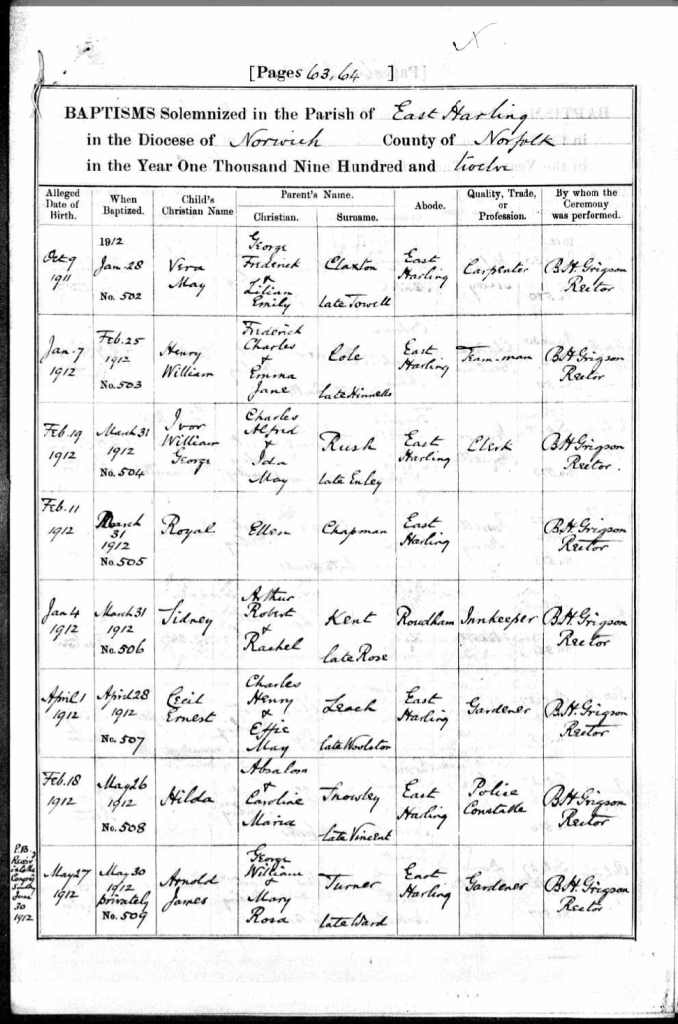 [Pages 63, 64 ]
BAPTISMS Solemnized in the Parish of East Harling
in the Diocese of Norwich County of Norfolk
in the Year One Thousand Nine Hundred and twelve
Alleged Date of Birth. When Baptized. Child's Christian Name Parent's Name. Christian. Surname. Abode. Quality, Trade, or Profession. By whom the Ceremony was performed.
Oct 9 1911 1912 Jan. 28 No. 502 Vera May George Frederick & Lilian Emily Claxton late Towell East Harling Carpenter B.H. Grigson Rector
Jan. 7 1912 Feb. 25 1912 No. 503 Henry William Frederick Charles & Emma Jane Cole late Hinnells East Harling Team-man B.H. Grigson Rector
Feb. 19 1912 March 31 1912 No. 504 Ivor William George Charles Alfred & Ida May Rush late Enley East Harling Clerk B.H. Grigson Rector.
Feb. 11 1912 March 31 1912 No. 505 Royal Ellen Chapman East Harling B.H. Grigson Rector
Jan 4 1912 March 31 1912 No. 506 Sidney Arthur Robert & Rachel Kent late Rose Roudham Innkeeper B.H. Grigson Rector
April 1 1912 April 28 1912 No. 507 Cecil Ernest Charles Henry & Effie May Leach late Woolston East Harling Gardener B.H. Grigson Rector
Feb. 18 1912 May 26 1912 No. 508 Hilda Absalom & Caroline Maria late Vincent East Harling Police Constable B.H. Grigson Rector
P.B. Receivd into the Congreg Sunday June 30 1912
May 27 1912 May 30 1912 privately No. 509 Arnold James George William & Mary Rosa Turner late Ward East Harling Gardener B.H. Grigson Rector